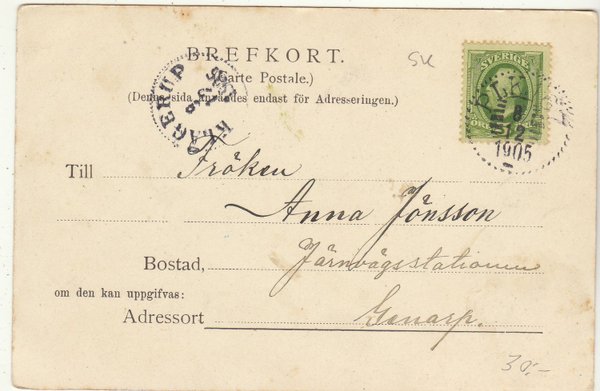 BREFKORT.
SK
(Carte Postale.)
(Denna sida användes endast för Adresseringen.)
KLÅGERUP
SVERIGE
8
12
1905
Till Fröken
Anna Jönsson
Bostad, Järnvägsstationen
om den kan uppgifvas:
Adressort Genarp.
30:-